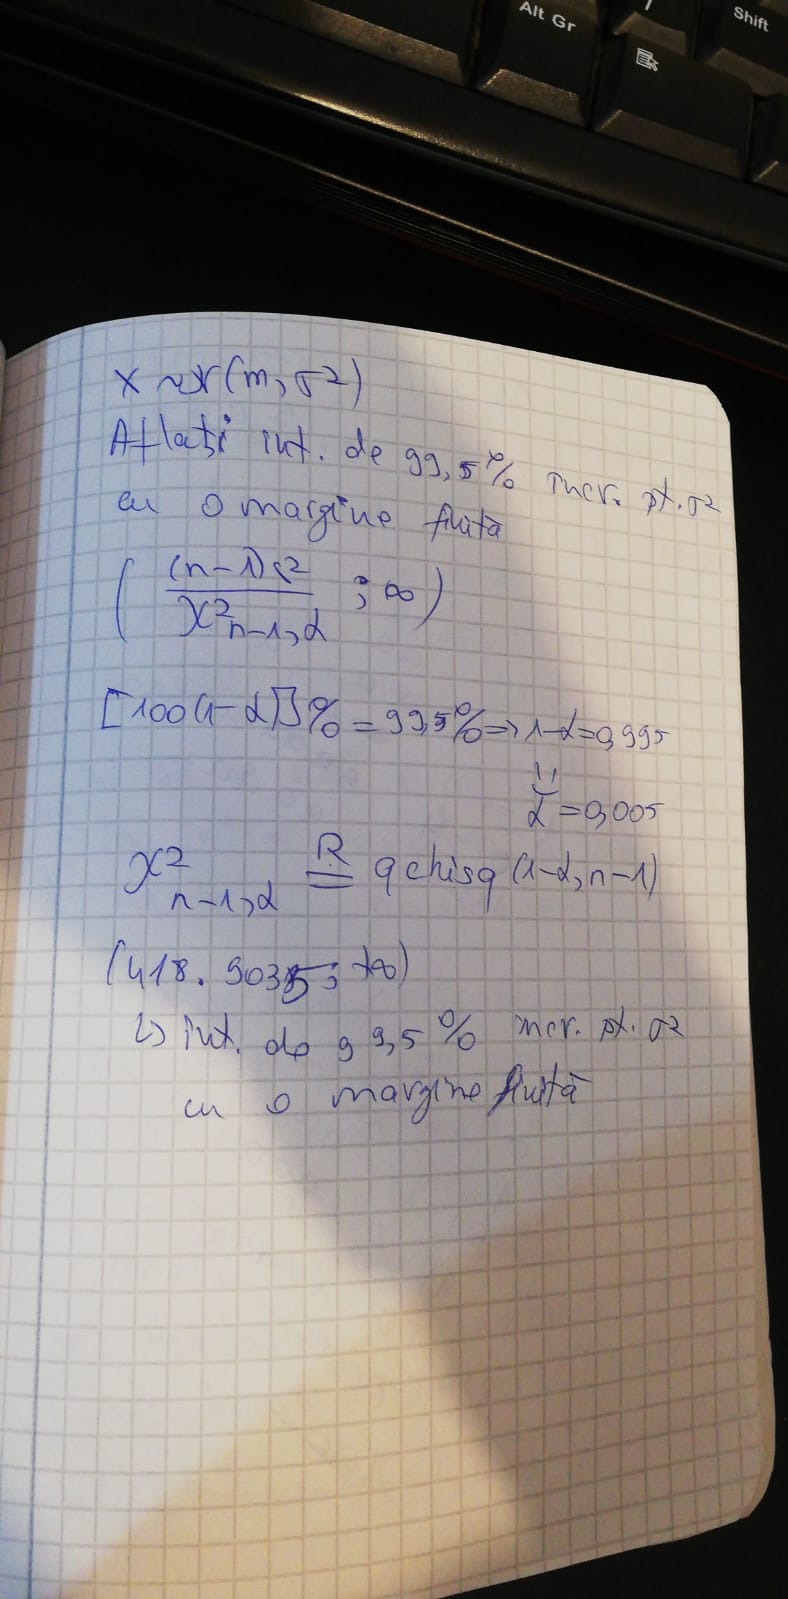 Alt Gr
Shift
X ~ N(m, σ²)
Aflați int. de 99,5% incr. pt. σ²
cu o margine finită
( (n-1)s² / χ²n-1,α ; ∞ )
[100(1-α)]% = 99,5% => 1-α = 0,995
α = 0,005
χ²n-1,α =R= qchisq(1-α, n-1)
(418. 9035; +∞)
↳ int. de 99,5% incr. pt. σ²
cu o margine finită